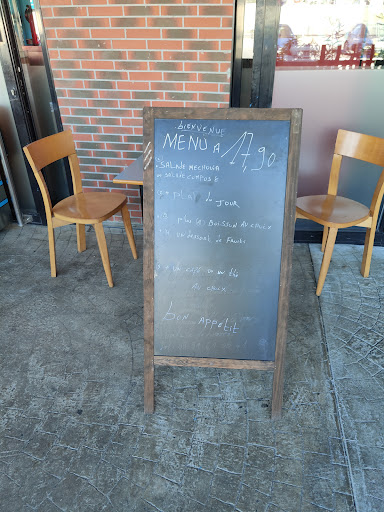 bienvenue
MENU A 17,90
SALADE MECHOUIA
ou SALADE COMPOSÉ
plat de JOUR
BOISSON AU CHOIX
un dessert de Fruits
un café ou un thé
Au choix
bon Appetit